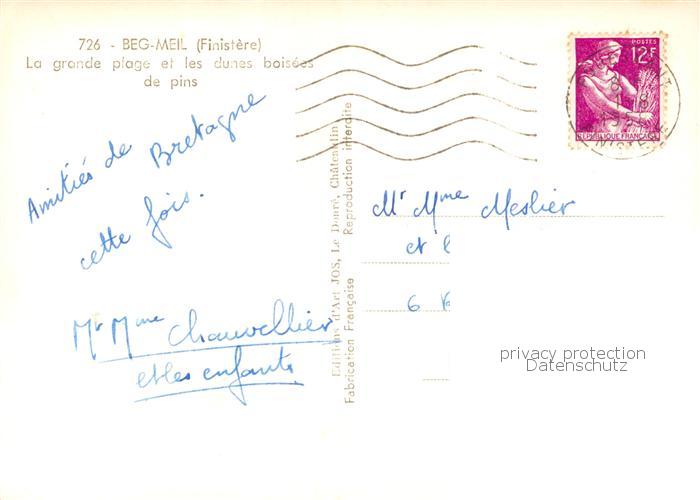 726 - BEG-MEIL (Finistère)
La grande plage et les dunes boisées
de pins
Amitiés de Bretagne
cette fois.
Mr Mme Chauvellier
et les enfants
Editions d'Art JOS, Le Doaré, Châteaulin
Fabrication Française Reproduction interdite
POSTES
12F
REPUBLIQUE FRANÇAISE
Mr Mme Meslier
et
6
privacy protection
Datenschutz